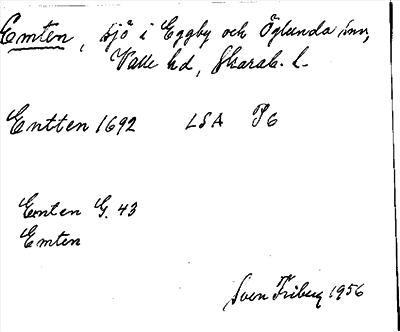 Emten, sjö i Eggby och Öglunda snr,
Valle hd, Skarab. l.
Entten 1692 LSA P 6
Emten G. 43
Emten
Sven Friberg 1956